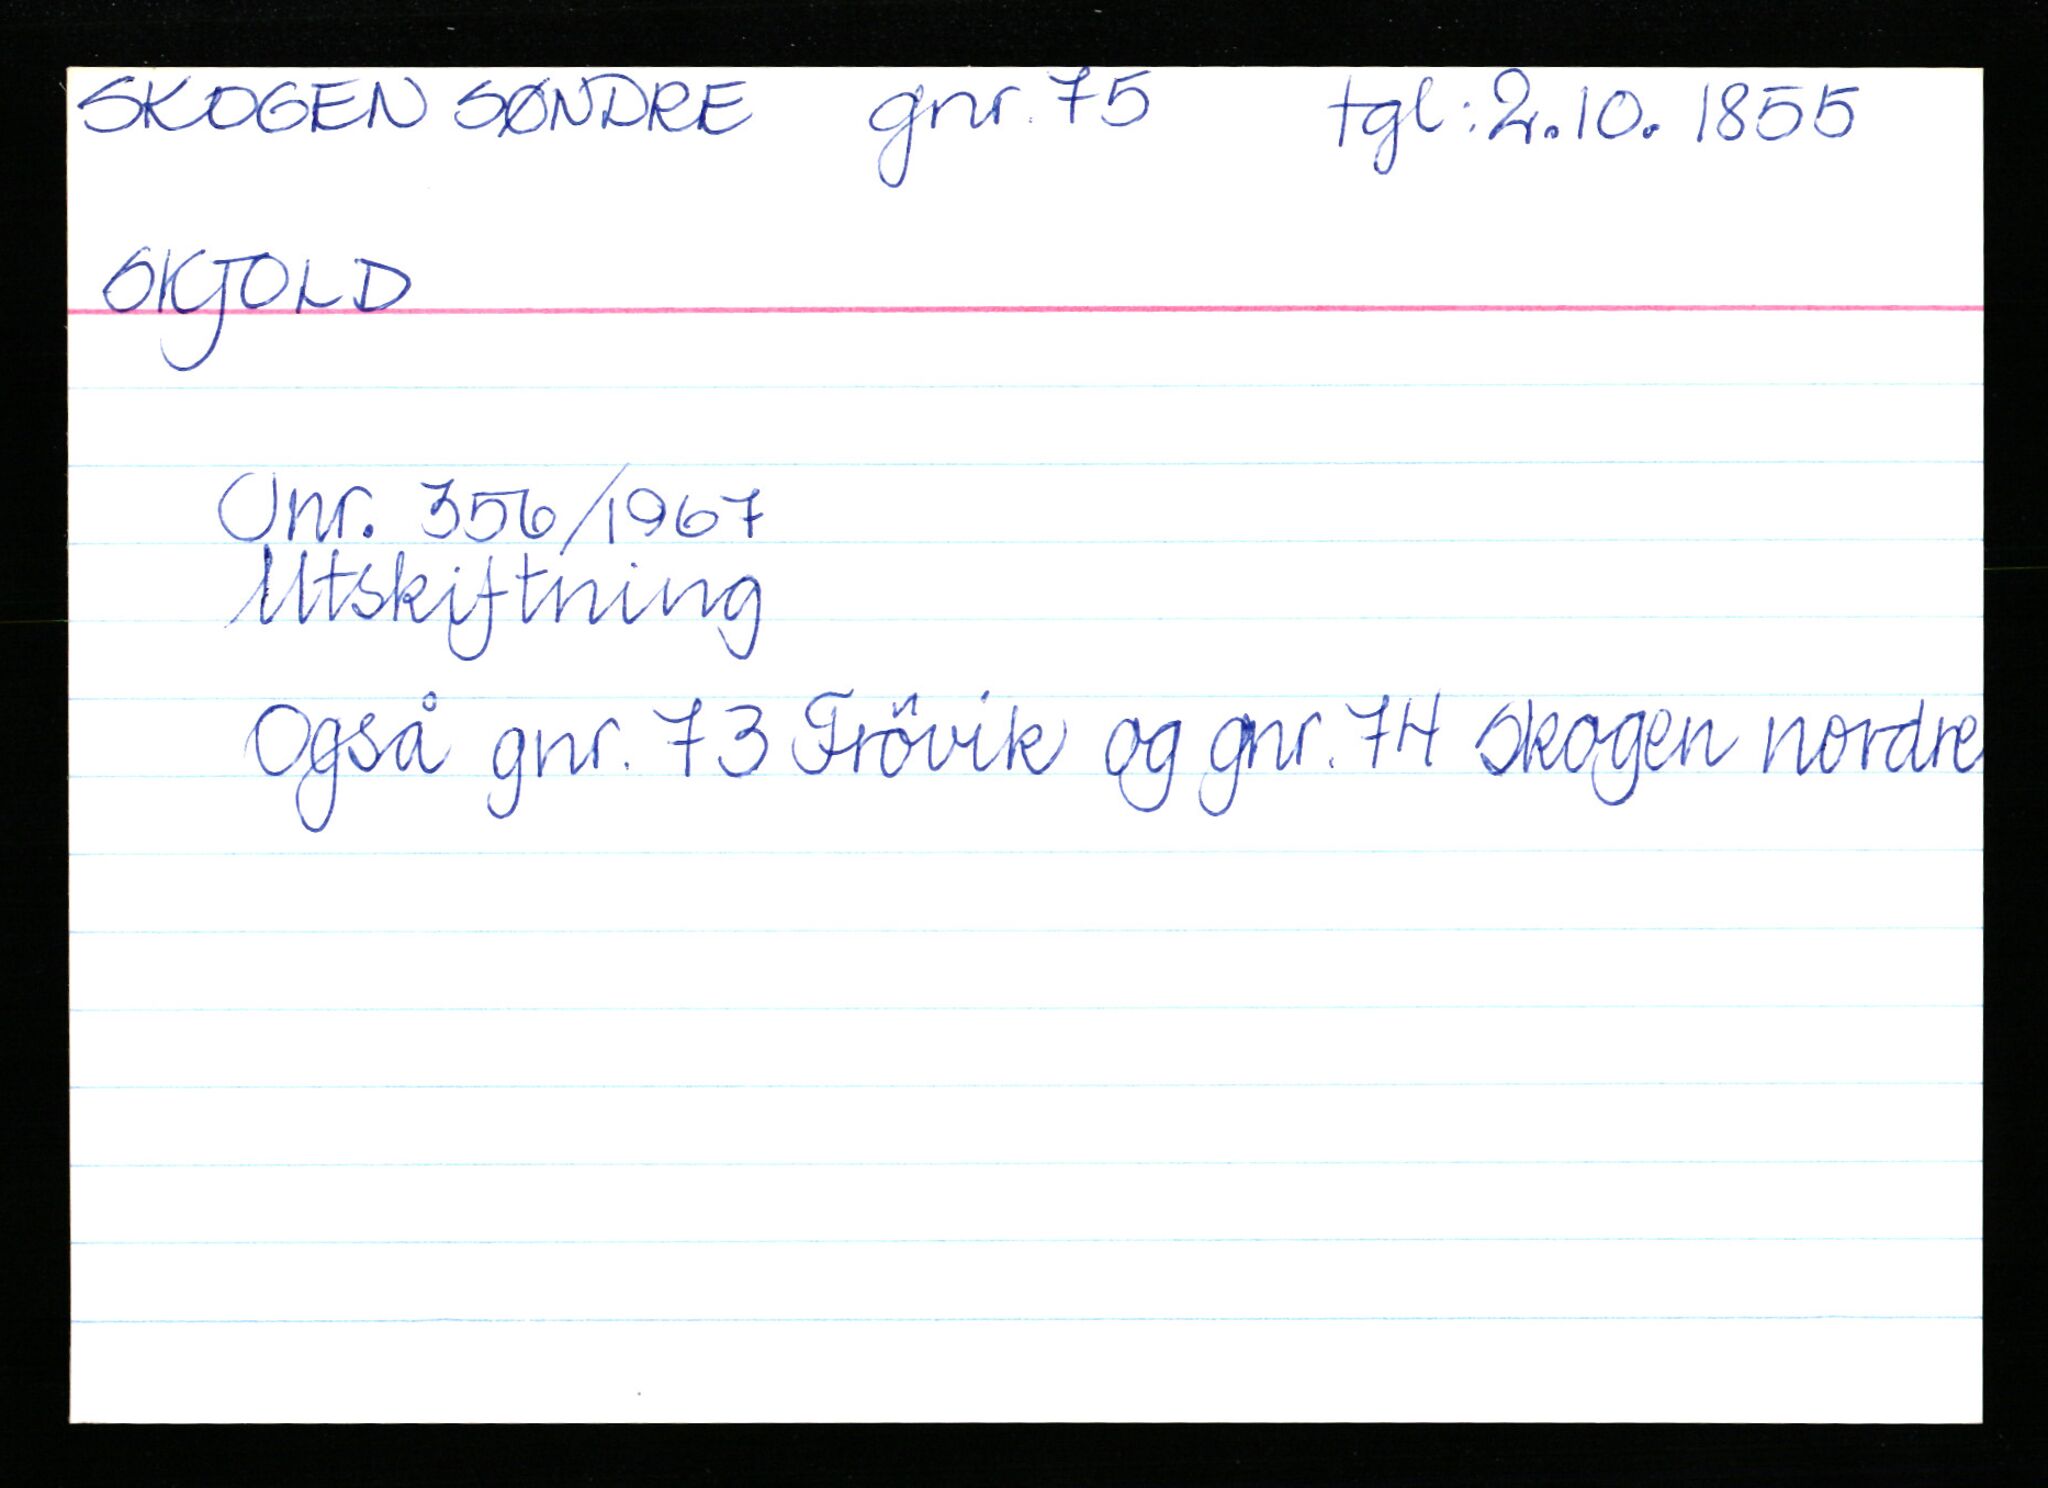 SKOGEN SØNDRE gnr. 75 tgl: 2.10. 1855
SKJOLD
Jnr. 356/1967
Utskiftning
Også gnr. 73 Frövik og gnr. 74 Skogen nordre